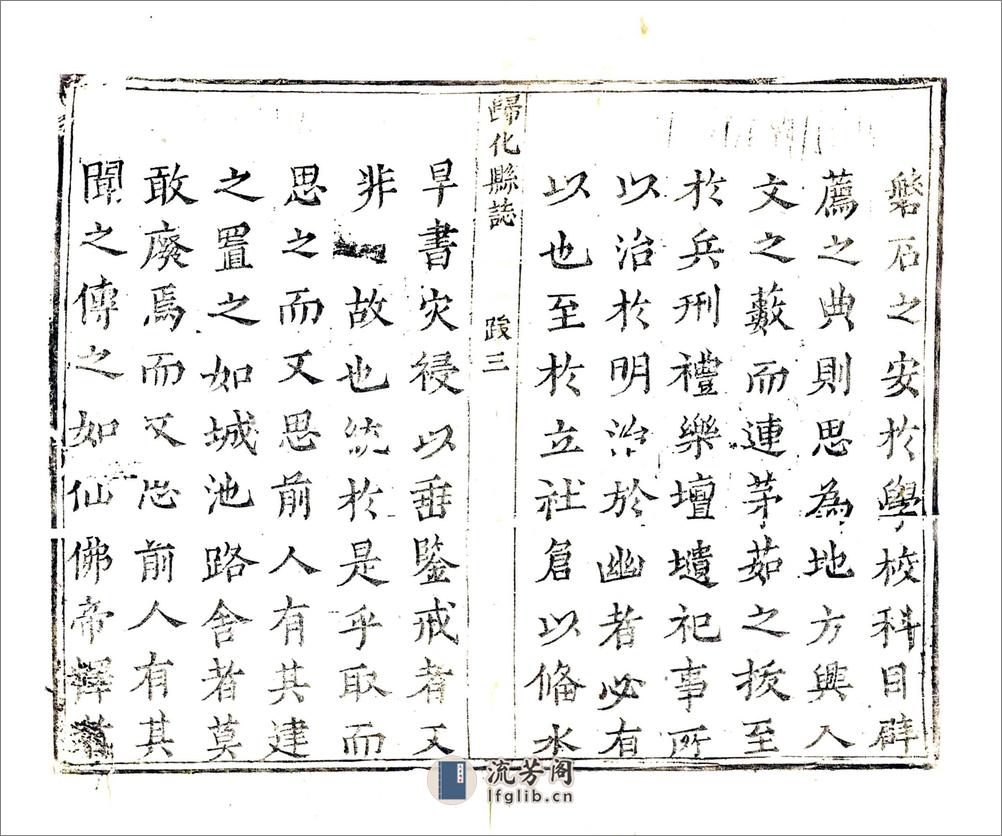 磐石之安於學校科目辟
薦之典則思為地方興人
文之藪而連茅茹之拔至
於兵刑禮樂壇壝祀事所
以治於明治於幽者必有
以也至於立社倉以備水
歸化縣誌 跋三
旱書灾祲以垂鍳戒者又
非故也統於是乎取而
思之而又思前人有其建
之置之如城池路舍者莫
敢廢焉而又思前人有其
聞之傳之如仙佛帝釋
流芳阁
lfglib.cn